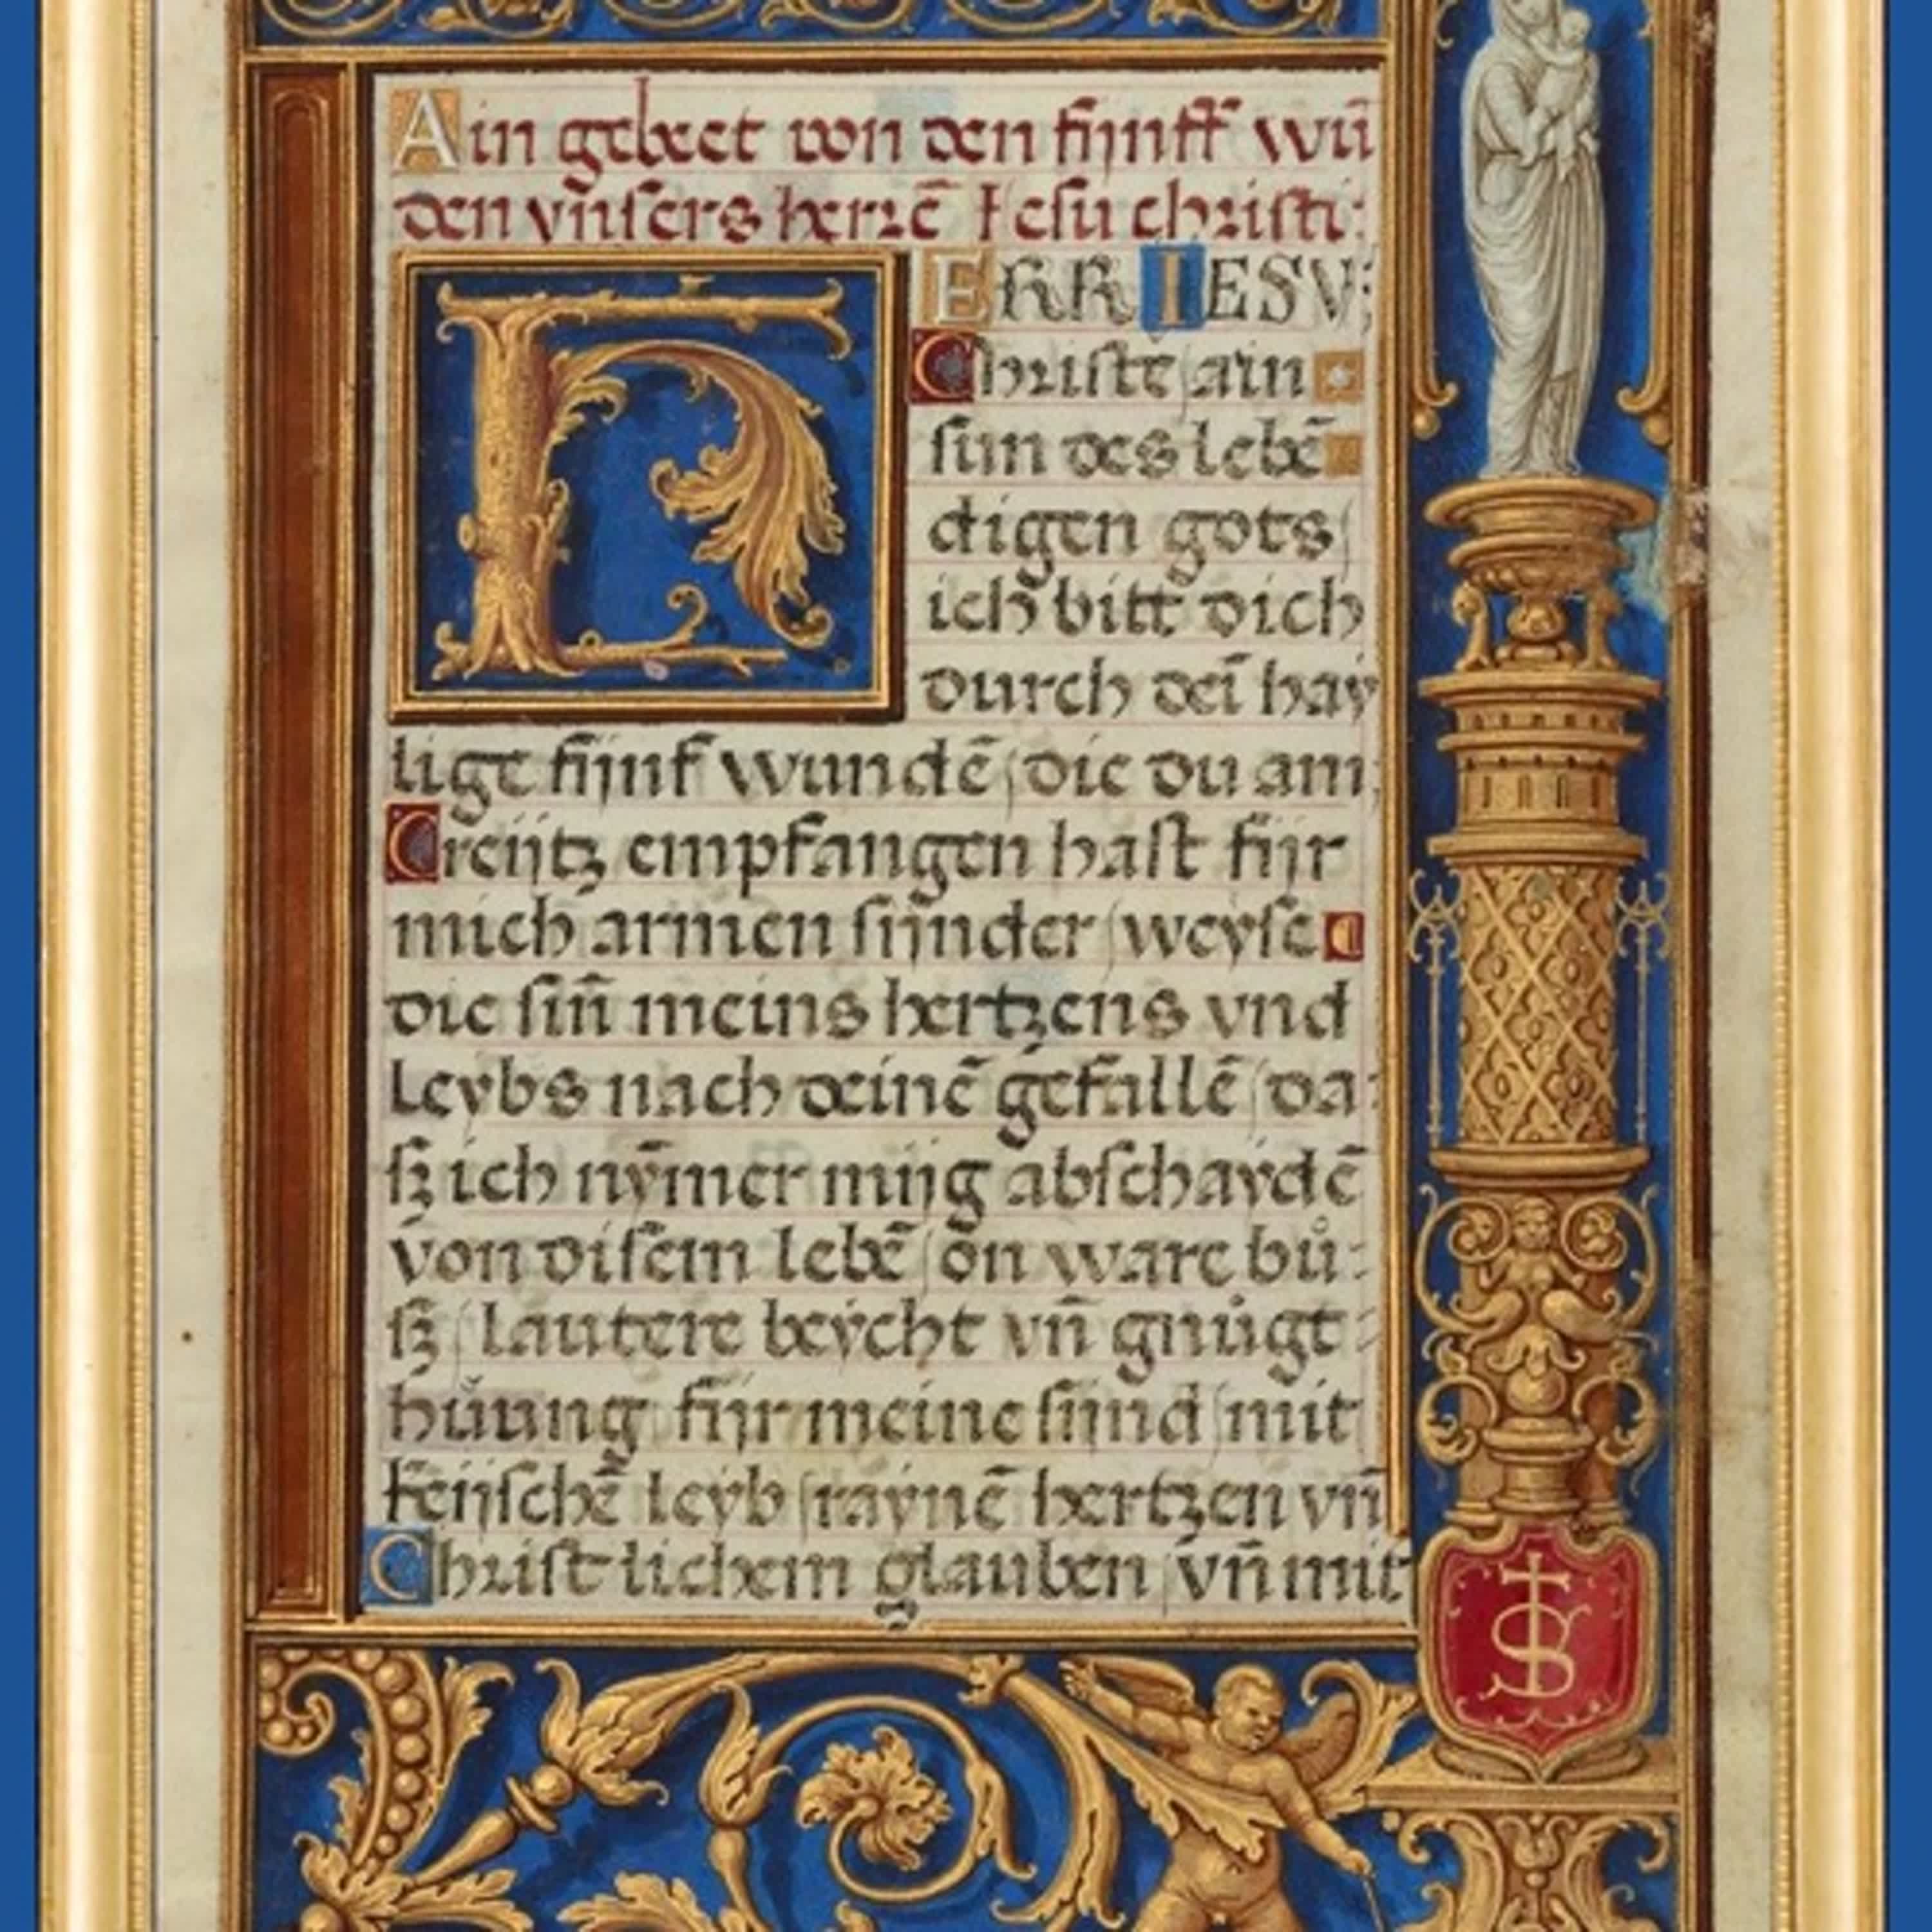 Ain gebeet von den fijnff wū
den vn̄sers herrē Iesu christi:
HERR IESV;
Christe ain
sun des lebē
digen gots/
ich bitt dich
durch deī hay
lige fijnf wundē/die du am
Creijtz empfangen hast fijr
mich armen sijnder/weyse
die sin̄ meins hertzens vnd
Leybs nach deinē gefallē/da:
sz ich nȳmer mijg abschaydē
von disem lebē/on ware bů:
sz/Lautere beycht vn̄ gnůgt:
hůung fijr meine sijnd/mit
keijschē leyb/raynē hertzen vn̄
Christlichem glauben/vn̄ mit